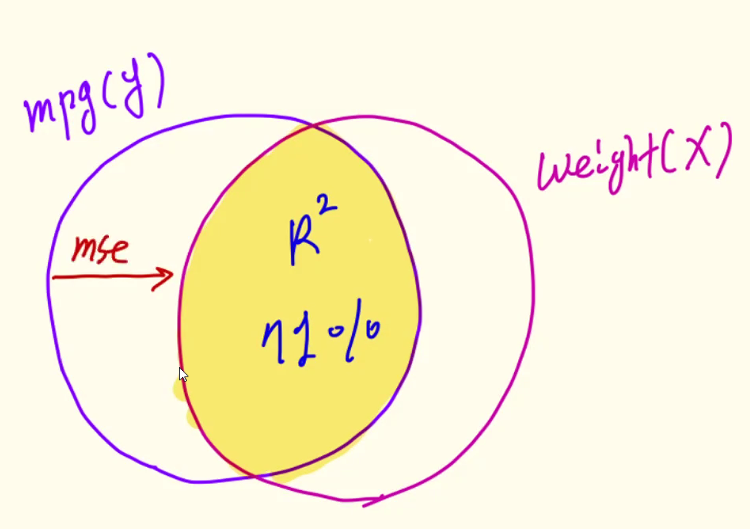 mpg(y)
weight(X)
mse
R²
71%